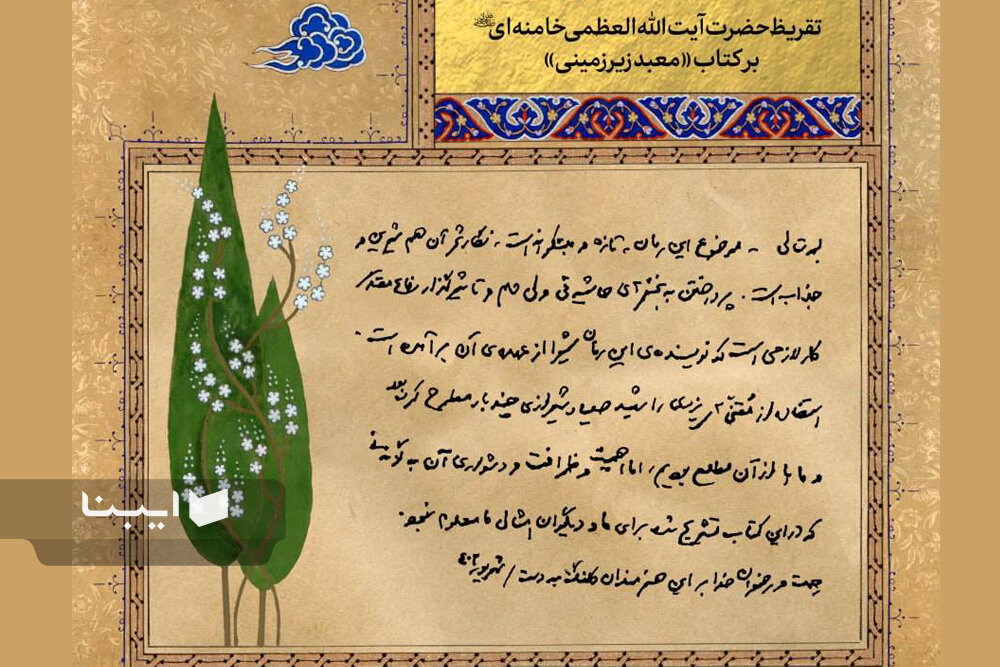 تقریظ حضرت آیت الله العظمی خامنه‌ای
بر کتاب «معبد زیرزمینی»
بسمه‌تعالی - موضوع این رمان، تازه و مبتکرانه است، نگارش آن هم شیرین و
جذاب است. پرداختن به بخشهای حاشیه‌ئی ولی مهم و تأثیرگذار دفاع مقدس
کار لازمی است که نویسنده‌ی این رمان شیوا از عهده‌ی آن برآمده است.
استفاده از مُقنّی‌های یزدی را شهید صیاد شیرازی چند بار مطرح کرده بود
و ما با از آن مطلع بودیم، اما اهمیت و ظرافت و دشواری آن به گونه‌ئی
که در این کتاب تشریح شده برای ما و دیگران امثال ما معلوم نبود.
رحمت و رضوان خدا بر این هنرمندان کلنگ به دست / شهریور ۴۰۲
ایبنا